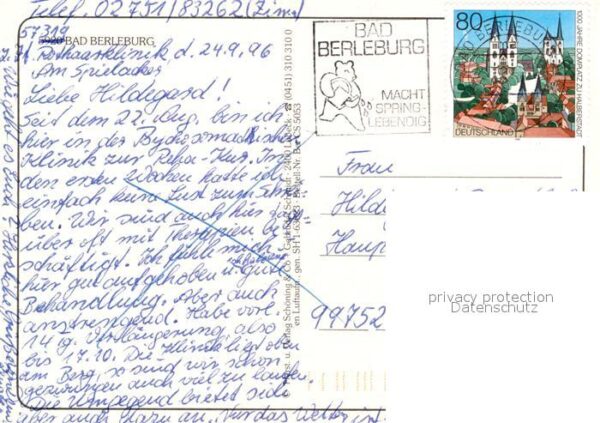 Telef. 02751/83262 (Zimm
57319
5920 BAD BERLEBURG,
z. Zt. Rothaarklinik d. 24.9.96
Am Spielacker
Liebe Hildegard!
Seit dem 22. Aug. bin ich
hier in der Psychosomatischen
Klinik zur Reha-Kur. In
den ersten 2 Wochen hatte ich
einfach kein Lust zum Schrei
ben. Wir sind auch hier
über oft mit Therapien be
schäftigt. Ich fühle mich
hier gut aufgehoben u. gute
Behandlung. Aber auch
anstrengend. Habe vorl.
14 tg. Verlängerung also
bis 17.10. Die Klinik liegt oben
am Berg, so sind wir schon
gezwungen auch viel zu laufen.
Die Umgegend bietet sich
aber auch dazu an. Nur das Wetter ist
Wie geht es Euch? Herzliche Grüße
Verlag Schöning & Co
(0451) 310 310 0
BAD
BERLEBURG
MACHT
SPRING-
LEBENDIG
80
BERLEBURG
1000 JAHRE DOMPLATZ ZU HALBERSTADT
DEUTSCHLAND
Frau
Hild
Haup
99752
privacy protection
Datenschutz